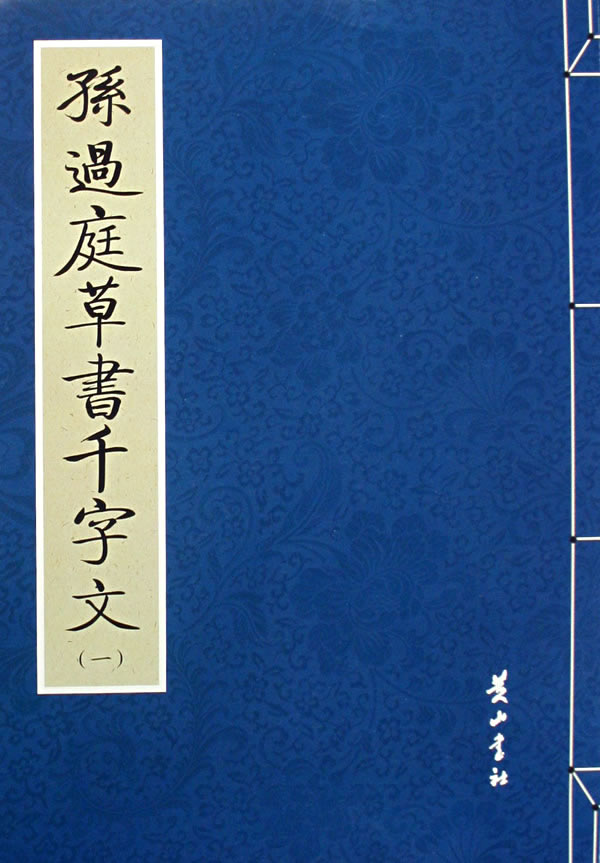 孫過庭草書千字文
(一)
黄山書社